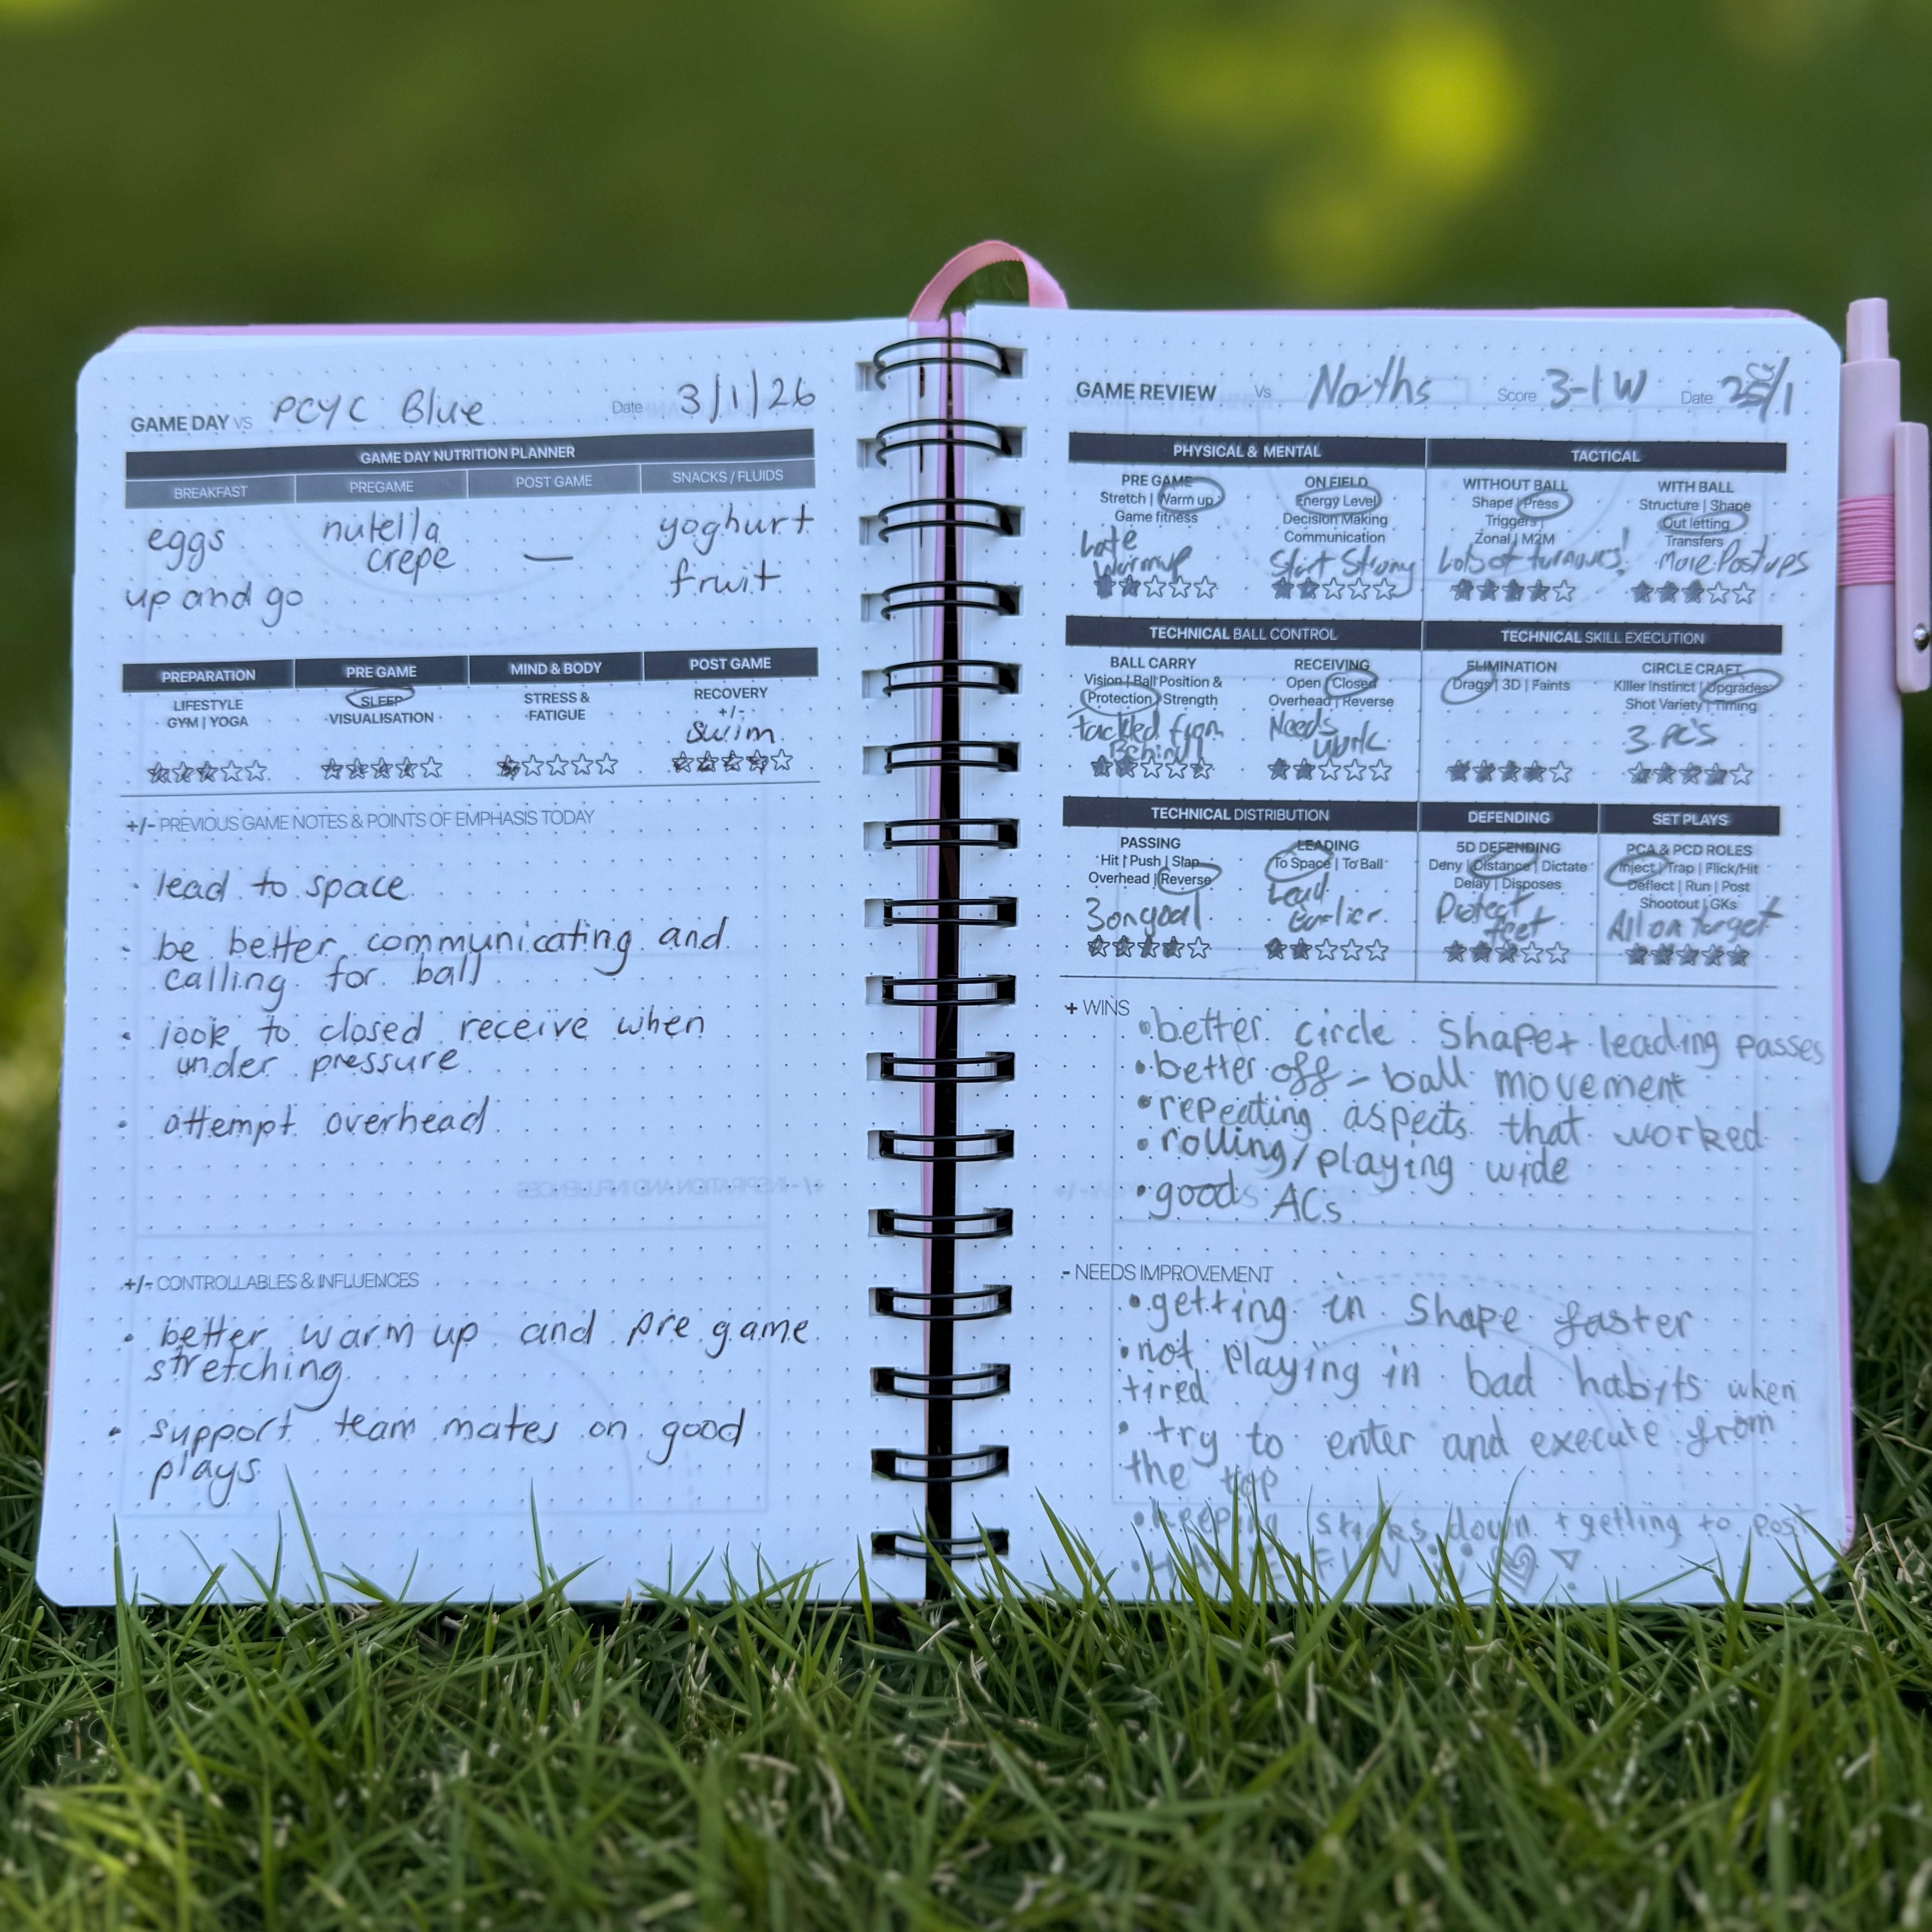 GAME DAY VS PCYC Blue Date 3/1/26
GAME DAY NUTRITION PLANNER
BREAKFAST PREGAME POST GAME SNACKS / FLUIDS
eggs nutella yoghurt
crepe —
up and go fruit
PREPARATION PRE GAME MIND & BODY POST GAME
LIFESTYLE SLEEP STRESS & RECOVERY
GYM | YOGA VISUALISATION FATIGUE +/-
swim
+/- PREVIOUS GAME NOTES & POINTS OF EMPHASIS TODAY
• lead to space
• be better communicating and
calling for ball
• look to closed receive when
under pressure
• attempt overhead
+/- CONTROLLABLES & INFLUENCES
• better warm up and pre game
stretching
• support team mates on good
plays
GAME REVIEW Vs Norths Score 3-1 W Date
PHYSICAL & MENTAL TACTICAL
PRE GAME ON FIELD WITHOUT BALL WITH BALL
Stretch | Warm up Energy Level Shape | Press Structure | Shape
Game fitness Decision Making Triggers | Out letting
Communication Zonal | M2M Transfers
Late Start Strong Lots of turnovers! More Post ups
Warmup
TECHNICAL BALL CONTROL TECHNICAL SKILL EXECUTION
BALL CARRY RECEIVING ELIMINATION CIRCLE CRAFT
Vision | Ball Position & Open | Closed Drags | 3D | Faints Killer Instinct | Upgrades
Protection | Strength Overhead | Reverse Shot Variety | Timing
tackled from Needs 3 PC's
Behind! Work
TECHNICAL DISTRIBUTION DEFENDING SET PLAYS
PASSING LEADING 5D DEFENDING PCA & PCD ROLES
Hit | Push | Slap To Space | To Ball Deny | Distance | Dictate Inject | Trap | Flick/Hit
Overhead | Reverse Delay | Disposes Deflect | Run | Post
Shootout | GKs
3 on goal Lead Protect All on target
Earlier feet
+ WINS
• better circle shape + leading passes
• better off-ball movement
• repeating aspects that worked
• rolling/playing wide
• goods ACs
- NEEDS IMPROVEMENT
• getting in shape faster
• not playing in bad habits when
tired
• try to enter and execute from
the top
• keeping sticks down + getting to post
• HAVE FUN